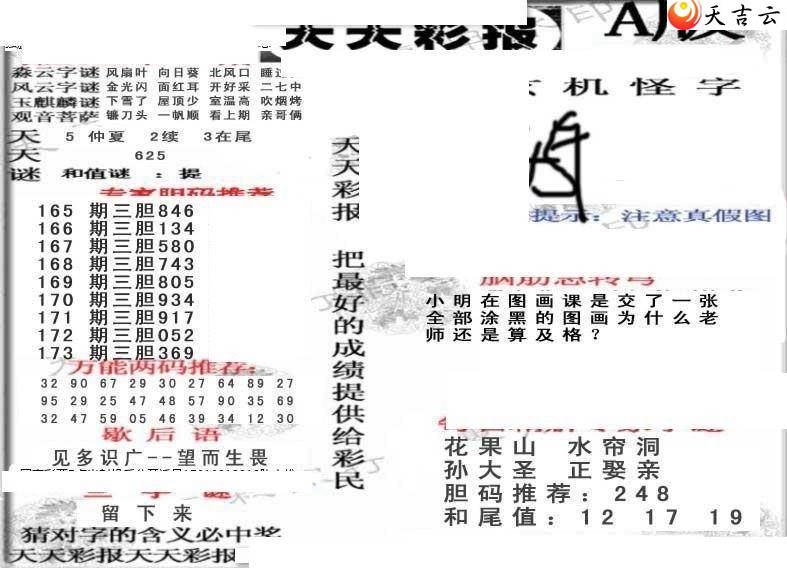 天吉云
天天彩报
淼云字谜 风扇叶 向日葵 北风口
风云字谜 金光闪 面红耳 开好采 二七中
玉麒麟谜 下雪了 屋顶少 室温高 吹烟烤
观音菩萨 镰刀头 一帆顺 看上期 亲哥俩
天 5 仲夏 2续 3在尾
天 625
谜 和值谜 ：提
机怪字
提示：注意真假图
专家胆码推荐
165 期三胆846
166 期三胆134
167 期三胆580
168 期三胆743
169 期三胆805
170 期三胆934
171 期三胆917
172 期三胆052
173 期三胆369
万能两码推荐：
32 90 67 29 30 27 64 89 27
95 29 25 47 48 57 90 35 69
32 47 59 05 46 39 34 12 30
歇后语
见多识广--望而生畏
留下来
猜对字的含义必中奖
天天彩报天天彩报
天天彩报 把最好的成绩提供给彩民
脑筋急转弯
小明在图画课是交了一张
全部涂黑的图画为什么老
师还是算及格？
花果山 水帘洞
孙大圣 正娶亲
胆码推荐：248
和尾值：12 17 19